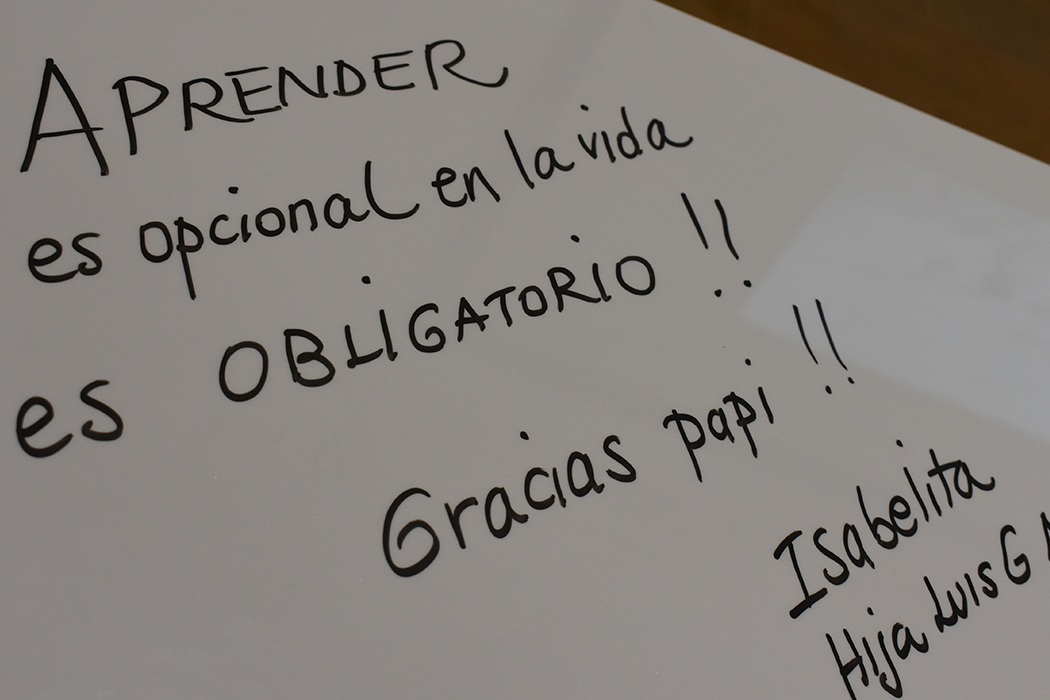 APRENDER
es opcional en la vida
es OBLIGATORIO !!
Gracias papi !!
Isabelita
Hija Luis G